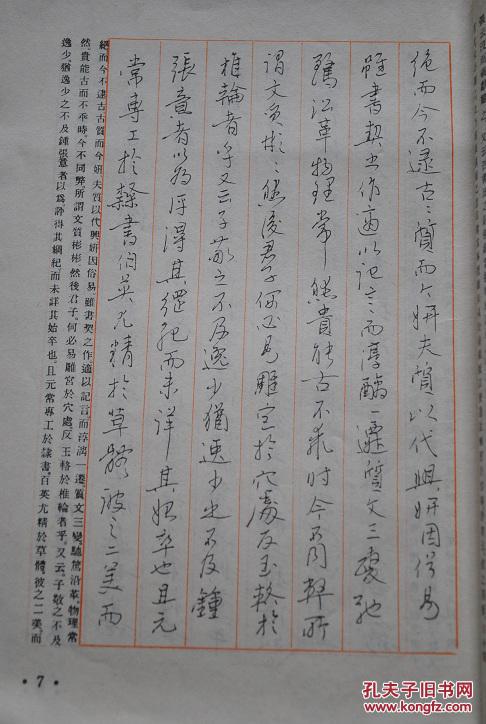 绝而今不逮古〻質而今妍夫質以代興妍因俗易
雖書契之作適以记言而淳醨一遷質文三變馳
騖沿革物理常然貴能古不乖时今不同弊所
谓文質彬〻然後君子何必易雕宫於穴處反玉輅於
椎輪者乎又云子敬之不及逸少猶逸少之不及鍾
張意者以为评得其綱纪而未详其始卒也且元
常專工於隸書伯英尤精於草體彼之二美而
絕而今不逮古古質而今妍夫質以代興妍因俗易雖書契之作適以記言而淳漓一遷質文三變馳騖沿革物理常
然貴能古而不乖時今不同弊所謂文質彬彬然後君子何必易雕宮於穴處反玉輅於椎輪者乎又云子敬之不及
逸少猶逸少之不及鍾張意者以爲評得其綱紀而未詳其始卒也且元常專工於隸書百英尤精於草體彼之二美而
• 7 •
孔夫子旧书网
www.kongfz.com